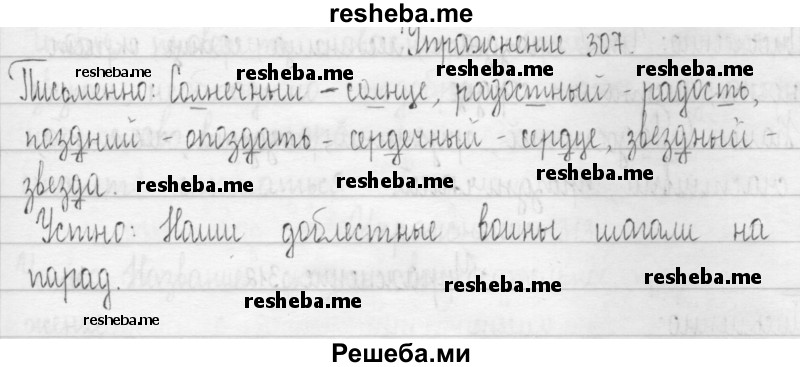 resheba.me
Упражнение 307.
resheba.me resheba.me resheba.me
Письменно: Солнечный – солнце, радостный - радость,
поздний - опоздать - сердечный - сердце, звездный -
звезда. resheba.me resheba.me resheba.me
Устно: Наши доблестные воины шагали на
парад.
resheba.me resheba.me resheba.me
resheba.me
Решеба.ми